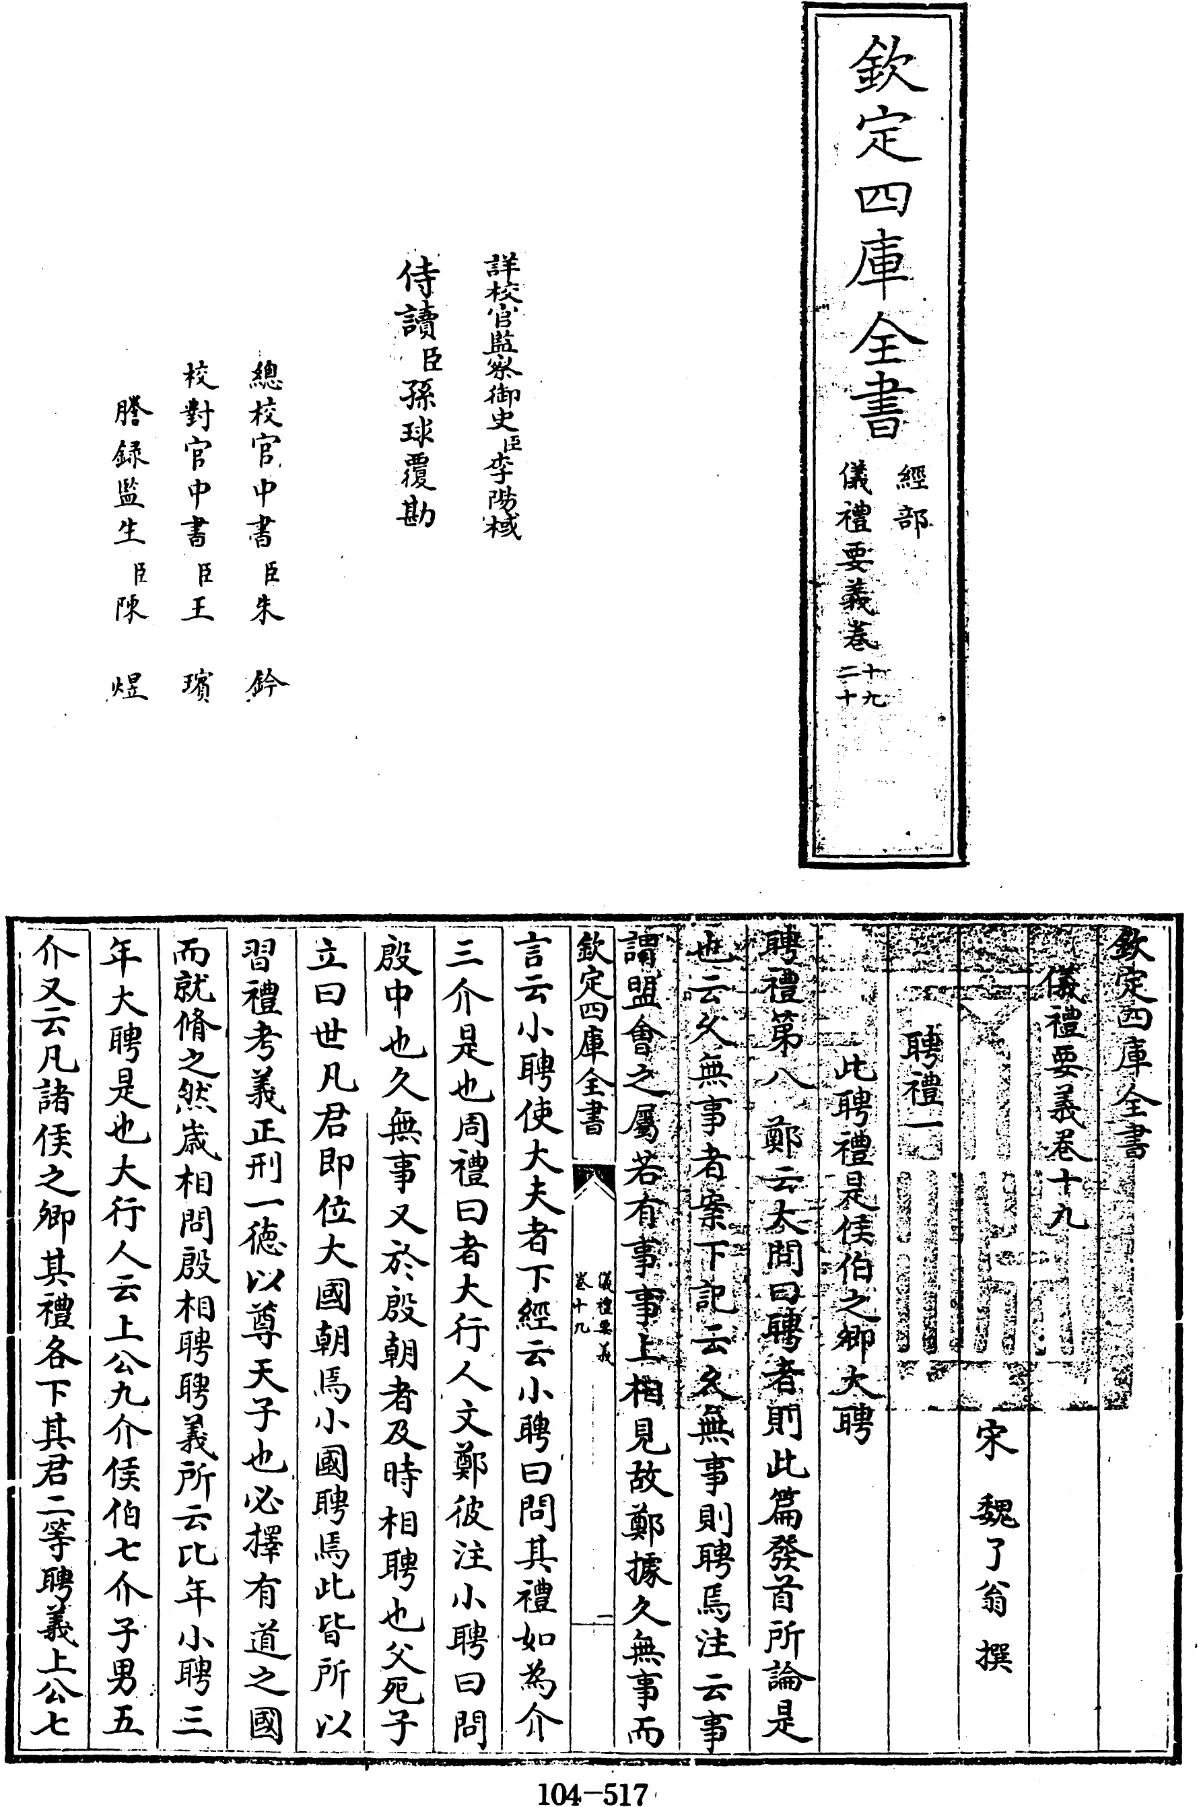 欽定四庫全書
經部
儀禮要義卷十九
二十
詳校官監察御史臣李陽棫
侍讀臣孫球覆勘
總校官中書臣朱鈐
校對官中書臣王璸
謄録監生臣陳煜
欽定四庫全書
儀禮要義卷十九
宋魏了翁撰
聘禮一
此聘禮是侯伯之卿大聘
聘禮第八鄭云大問曰聘者則此篇發首所論是
也云久無事者案下記云久無事則聘焉注云事
謂盟會之屬若有事事上相見故鄭據久無事而
欽定四庫全書
儀禮要義
卷十九
一
言云小聘使大夫者下經云小聘曰問其禮如為介
三介是也周禮曰者大行人文鄭彼注小聘曰問
殷中也久無事又於殷朝者及時相聘也父死子
立曰世凡君即位大國朝焉小國聘焉此皆所以
習禮考義正刑一德以尊天子也必擇有道之國
而就脩之然歲相問殷相聘聘義所云比年小聘三
年大聘是也大行人云上公九介侯伯七介子男五
介又云凡諸侯之卿其禮各下其君二等聘義上公七
104-517